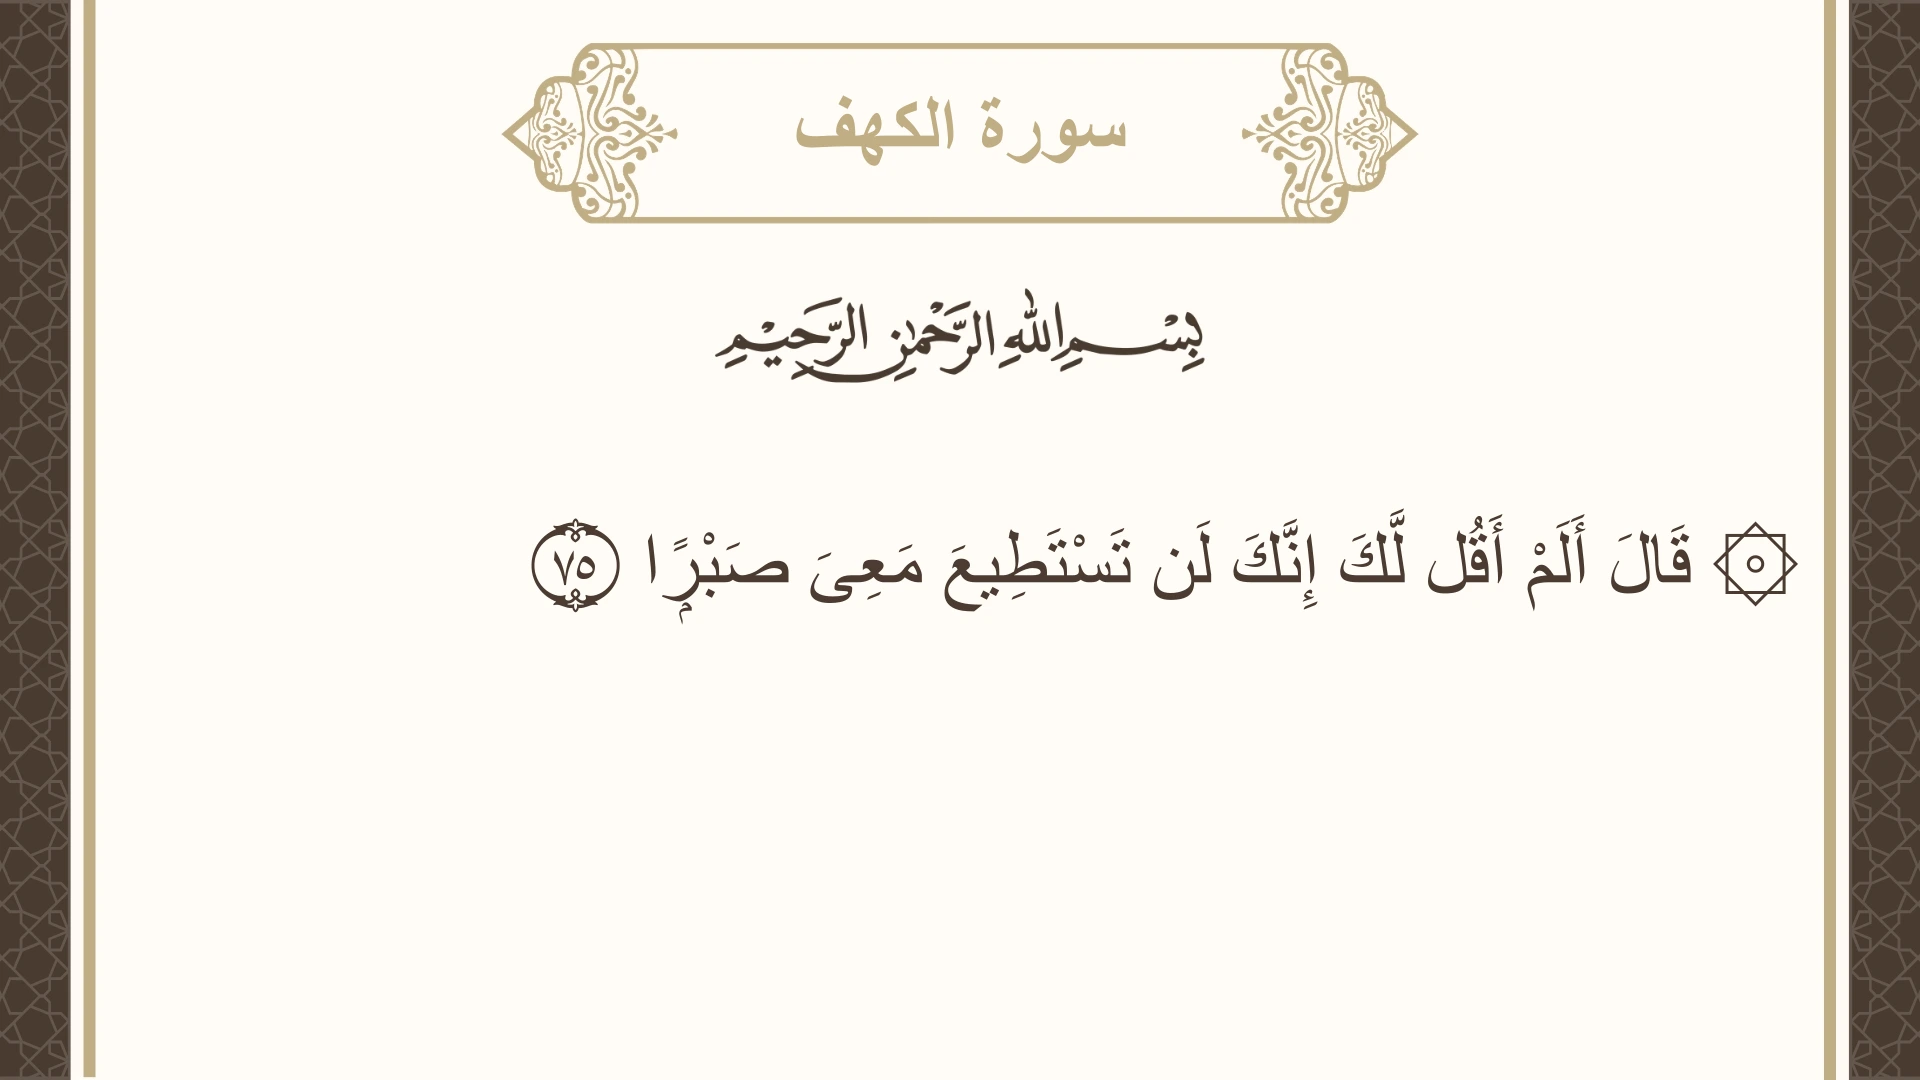 سورة الكهف
بِسْمِ اللهِ الرَّحْمٰنِ الرَّحِيْمِ
۞ قَالَ أَلَمْ أَقُل لَّكَ إِنَّكَ لَن تَسْتَطِيعَ مَعِىَ صَبْرًۭا ٧٥